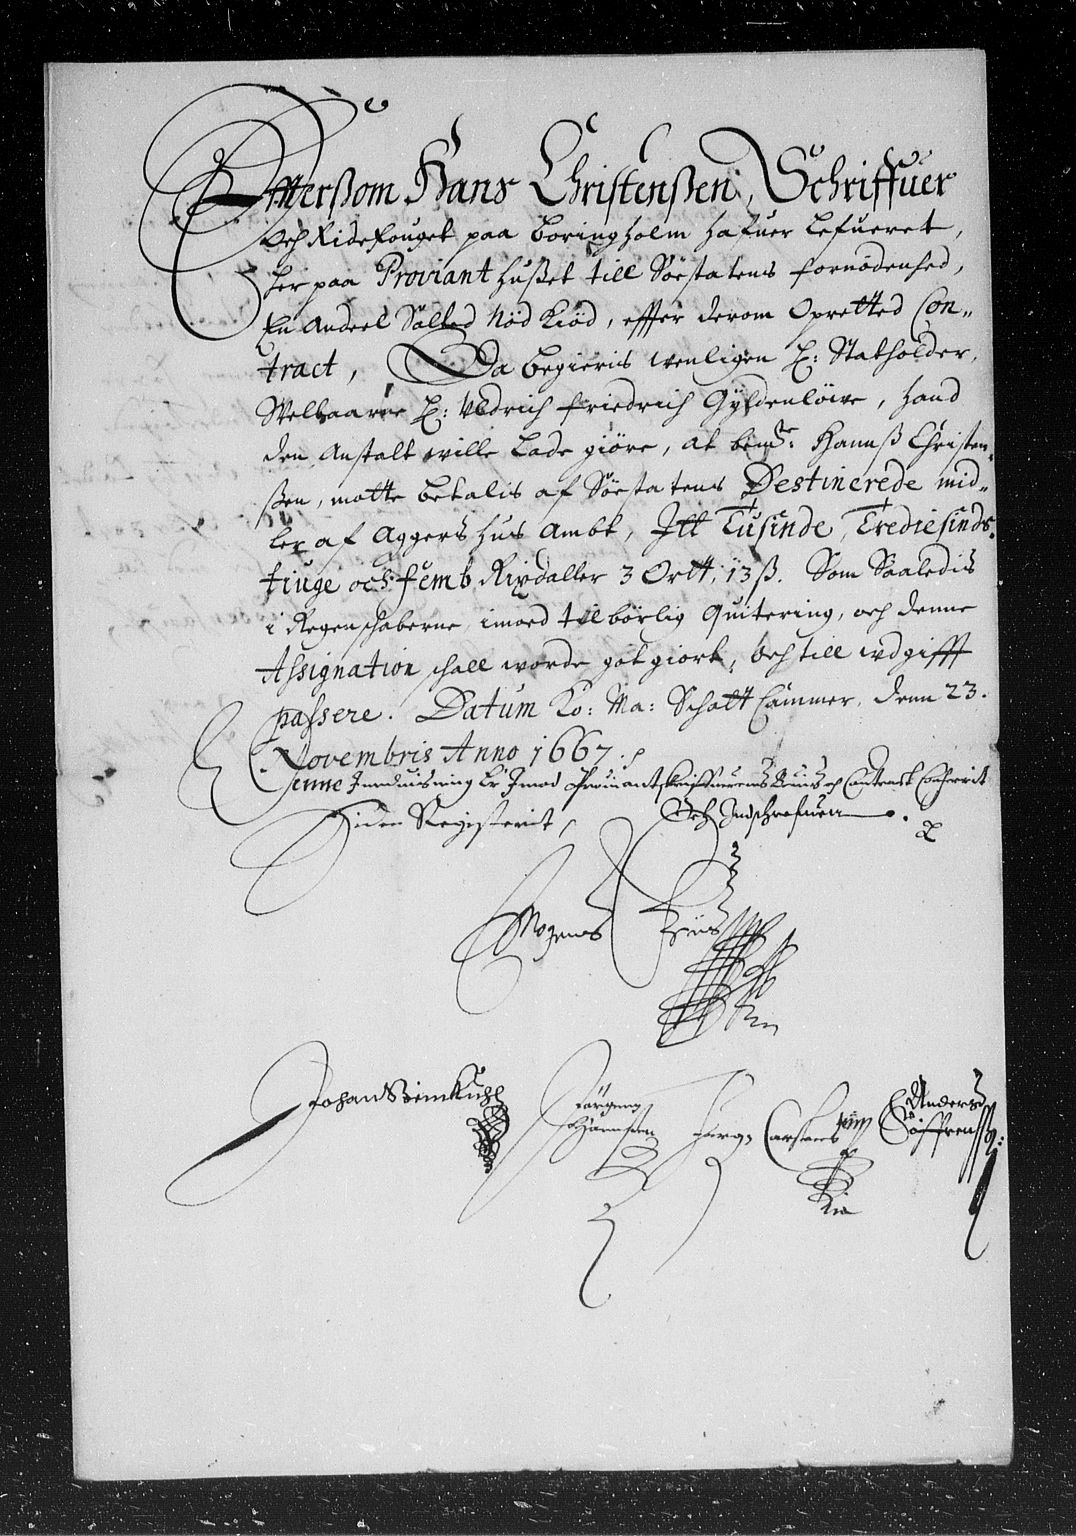 Efftterßom Hans Christenßen, Schriffuer
Och Ridefouget paa Boringholm hafuer lefueret,
her paa Proviant hußet till Söestatens fornödenhed,
En Andeel Salted Nöd Kiöd, effter derom Opretted Con„
tract, Da begieris wenligen H: Statholder,
Welbaarne H: Uldrich Friedrich Gyldenlöwe, hand
den Anstalt wille lade giöre, at bemte: Hannß Christen„
ßen, motte betalis af Söestatens Destinerede mid„
ler af Aggers huus Ambt, Itt Tusinde, Trediesinds„
tiuge och femb Rixdaller 3 Ortt, 13 ß. Som Saaledis
i Regenschaberne, imoed tilbörlig Quitering, och denne
Assignation schall worde gotgiort, och till wdgifft
passere. Datum Ko: Ma: Schatt Cammer, denn 23.
Novembris Anno 1667.
Denne Innduisning Er Imod Prouiantskriffuerens Beuis och Contract Confererit
Siden Registerit, Och Indschrefuen
Mogens Friis
Johan Steinkuhl
Jörgen
Hansen
Jurgen Carstens
Anders
Söffrenß: